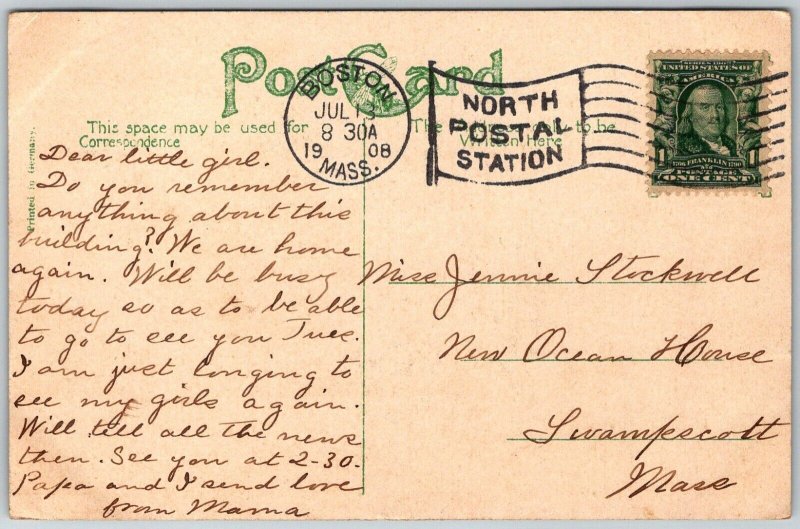 Post Card
This space may be used for
Correspondence
The
to be
Written Here
Printed in Germany.
BOSTON
JUL 13
8 30A
19 08
MASS.
NORTH
POSTAL
STATION
SERIES 1902
UNITED STATES OF
AMERICA
1 1
1706 FRANKLIN 1790
POSTAGE
ONE CENT
Dear little girl.
Do you remember
anything about this
building? We are home
again. Will be busy
today so as to be able
to go to see you Tues.
I am just longing to
see my girls again.
Will tell all the news
then. See you at 2-30.
Papa and I send love
from Mama
Miss Jennie Stockwell
New Ocean House
Swampscott
Mass